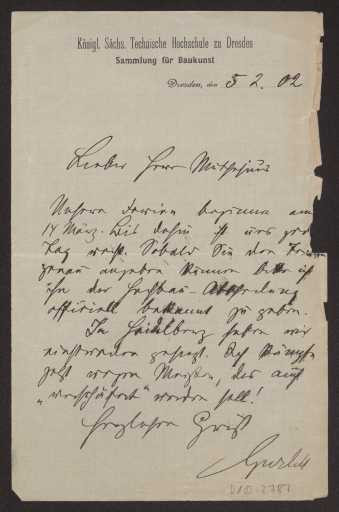 Königl. Sächs. Technische Hochschule zu Dresden
Sammlung für Baukunst
Dresden, den 5 2. 02
Lieber Herr Muthesius
Unsere Ferien beginnen am
14 März. Bis dahin ist uns jeder
Tag recht. Sobald Sie den
genau angeben können bitte ich
ihn der Hochbau-Abtheilung
officiell bekannt zu geben.
In Heidelberg haben wir
einstweilen gesiegt. Ich kämpfe
jetzt wegen Meißen, das auch
"verschäfert" werden soll!
Herzlichen Gruß
Gurlitt
D 10-2781